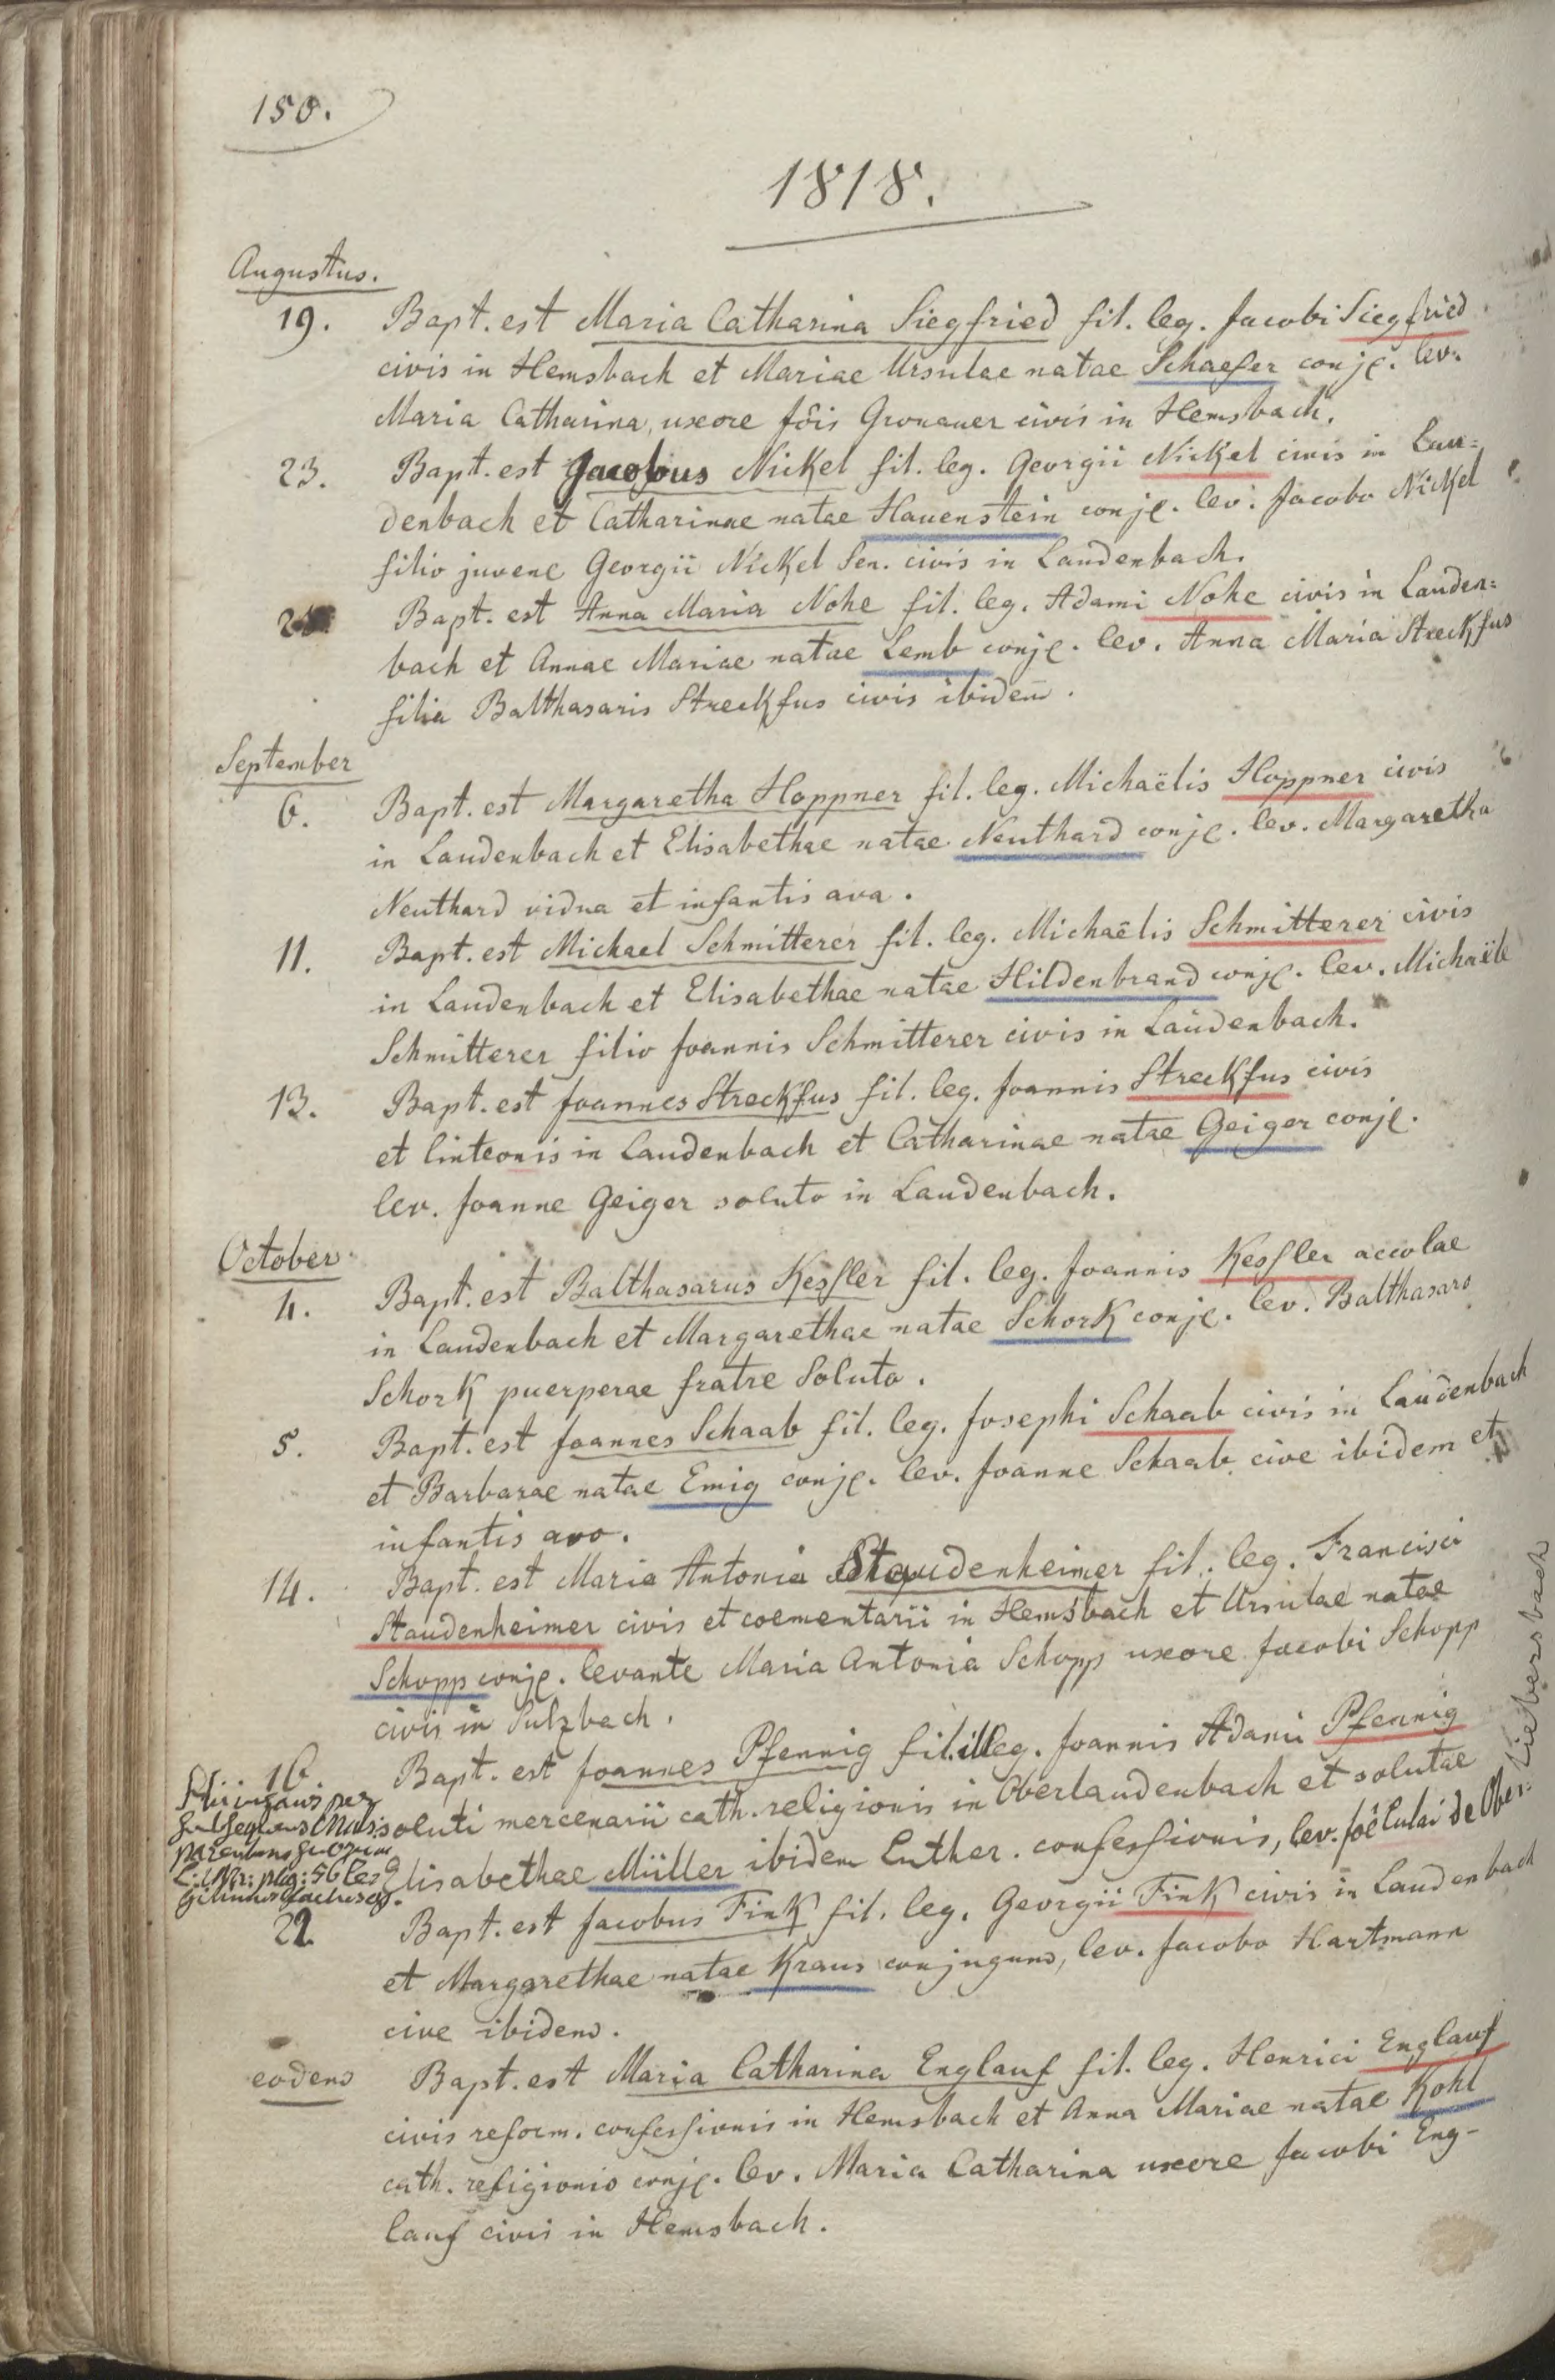 150.
1818.
Augustus.
19. Bapt. est Maria Catharina Siegfried fil. leg. Jacobi Siegfried
civis in Hemsbach et Mariae Ursulae natae Schaefer conj. lev.
Maria Catharina, uxore Jōis Gronauer civis in Hemsbach.
23. Bapt. est Jacobus Nickel fil. leg. Georgii Nickel civis in Lau=
denbach et Catharinae natae Hauenstein conj. lev. Jacobo Nickel
filio juvene Georgii Nickel Sen. civis in Laudenbach.
Bapt. est Anna Maria Nohe fil. leg. Adami Nohe civis in Lauden=
bach et Annae Mariae natae Lemb conj. lev. Anna Maria Streckfus
filia Balthasaris Streckfus civis ibidem.
September
6. Bapt. est Margaretha Hoppner fil. leg. Michaëlis Hoppner civis
in Laudenbach et Elisabethae natae Neuthard conj. lev. Margaretha
Neuthard vidua et infantis ava.
11. Bapt. est Michael Schmitterer fil. leg. Michaëlis Schmitterer civis
in Laudenbach et Elisabethae natae Hildenbrand conj. lev. Michaële
Schmitterer filio Joannis Schmitterer civis in Laudenbach.
13. Bapt. est Joannes Streckfus fil. leg. Joannis Streckfus civis
et linteonis in Laudenbach et Catharinae natae Geiger conj.
lev. Joanne Geiger soluto in Laudenbach.
October
4. Bapt. est Balthasarus Kessler fil. leg. Joannis Kessler accolae
in Laudenbach et Margarethae natae Schork conj. lev. Balthasaro
Schork puerperae fratre soluto.
5. Bapt. est Joannes Schaab fil. leg. Josephi Schaab civis in Laudenbach
et Barbarae natae Emig conj. lev. Joanne Schaab cive ibidem et
infantis avo.
14. Bapt. est Maria Antonia Staudenheimer fil. leg. Francisci
Staudenheimer civis et coementarii in Hemsbach et Ursulae natae
Schopp conj. levante Maria Antonia Schopp uxore Jacobi Schopp
civis in Sulzbach.
16. Bapt. est Joannes Pfennig fil. illeg. Joannis Adami Pfennig
soluti mercenarii cath. religionis in Oberlaudenbach et solutae
Elisabethae Müller ibidem Luther. confessionis, lev. Joê Lulai de Ober=
Liebersbach
22. Bapt. est Jacobus Fink fil. leg. Georgii Fink civis in Laudenbach
et Margarethae natae Kraus conjugum, lev. Jacobo Hartmann
cive ibidem.
eodem Bapt. est Maria Catharina Englauf fil. leg. Henrici Englauf
civis reform. confessionis in Hemsbach et Anna Mariae natae Kohl
cath. religionis conj. lev. Maria Catharina uxore Jacobi Eng-
lauf civis in Hemsbach.